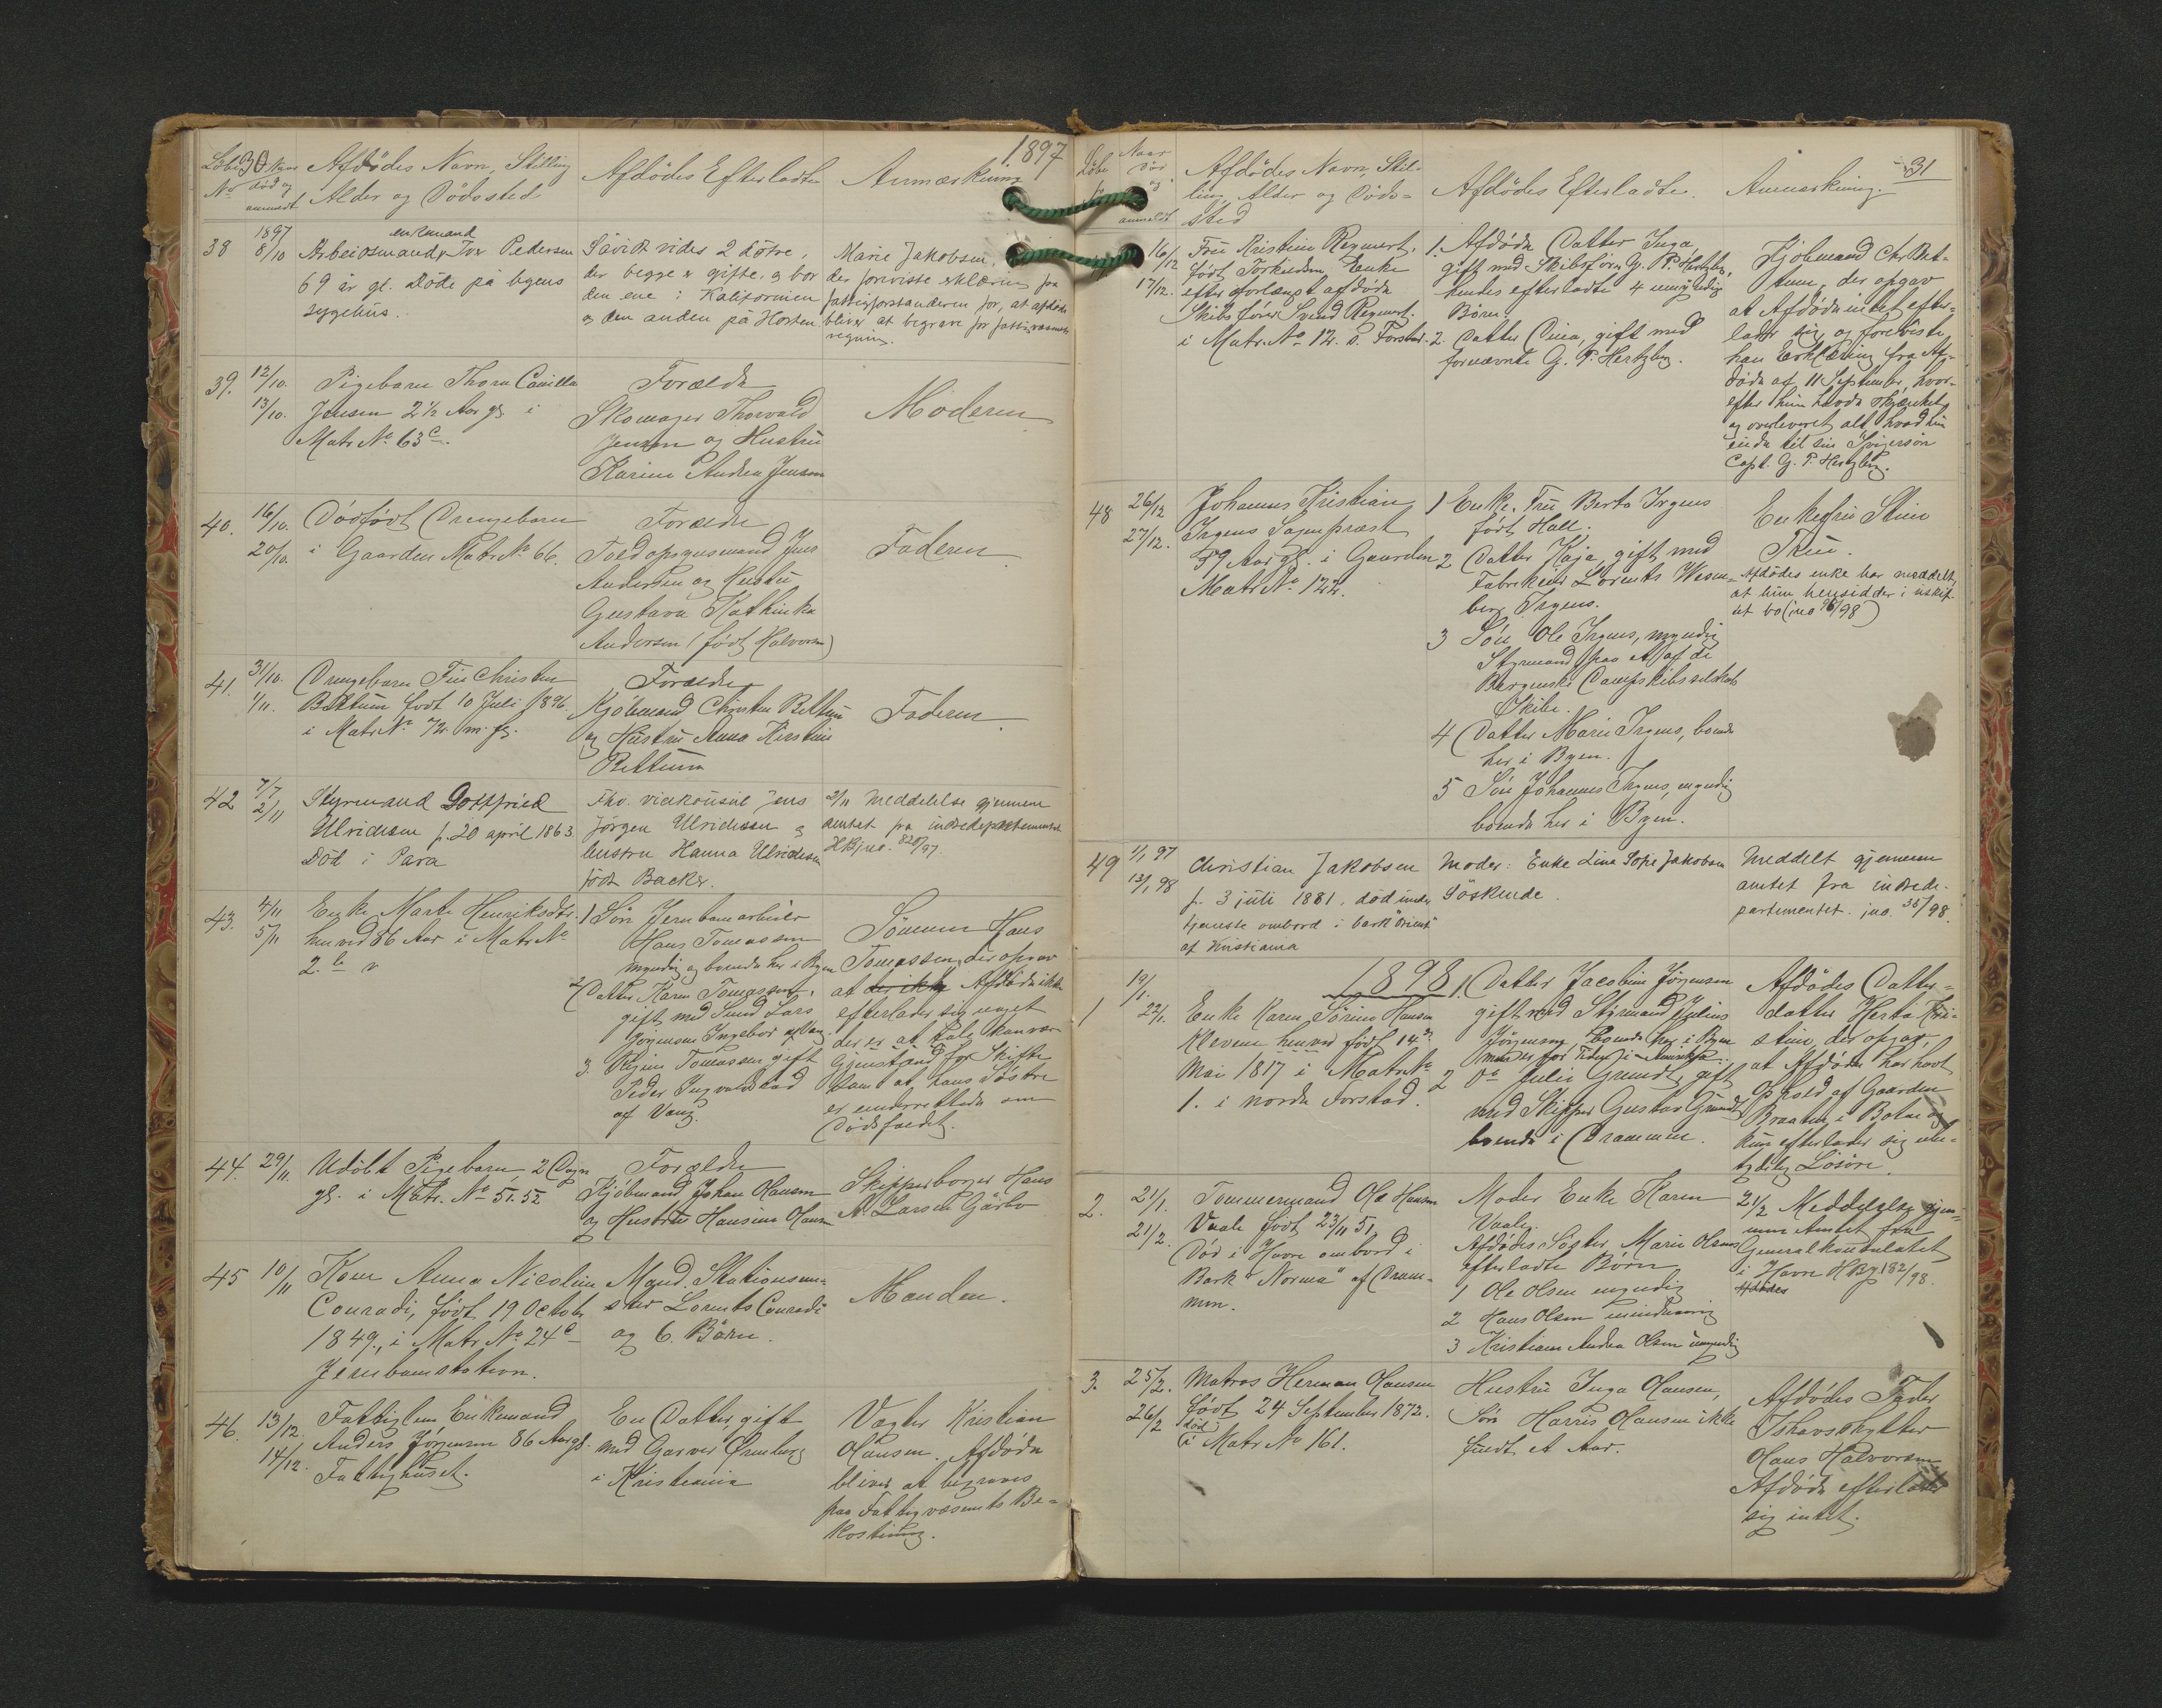 30
1897
Löbe No
Naar død og anmeldt
Afdödes Navn, Stilling
Alder og Dödssted
Afdödes Efterladte
Anmærkning
38
1897
8/10
enkemand
Arbeidsmand Iver Pedersen
69 år gl. Döde på byens
sygehus.
Såvidt vides 2 döttre,
der begge er gifte, og bor
den ene i Kalifornien
og den anden på Horten
Marie Jakobsen,
der foreviste erklæring fra
fattigforstanderen for, at afdöde
bliver at begrave for fattigvæsenets
regning.
39.
12/10.
13/10.
Pigebarn Thora Camilla
Jensen 2 1/2 Aar gl. i
Matr No 63c.
Forældre
Skomager Thorvald
Jensen og Hustru
Karine Andrea Jensen
Moderen
40.
16/10.
20/10.
Dödfödt Drengebarn
i Gaarden Matr No 66.
Forældre
Toldopsynsmand Jens
Andersen og Hustru
Gustava Kathinka
Andersen (födt Halvorsen)
Faderen
41.
31/10.
1/11.
Drengebarn Finn Christen
Bettum födt 10 Juli 1896.
i Matr No 72.
Forældre
Kjöbmand Christen Bettum
og Hustru Anna Kirstine
Bettum
Faderen
42
7/7
2/11
Styrmand Gottfried
Ulrichsen f. 20 april 1863.
Död i Para
Fhv. vicekonsul Jens
Jörgen Ulrichsen og
hustru Hanna Ulrichsen
födt Backer.
2/11 Meddelelse gjennem
amtet fra indredepartementet
HB jno. 820/97.
43.
4/11
5/11
Enke Marte Henriksdtr.
henved 86 Aar i Matr No
2. b
1 Sön Jernbanearbeider
Hans Tomassen
myndig og boende her i Byen
2 Datter Karen Tomassen,
gift med Lars
Jörgensen
3. Tomassen gift
Peder
af Vang.
Sönnen Hans
Tomassen, der opgav
at der ikke Afdöde ikke
efterlader sig noget
der er at tale kan være
Gjenstand for Skifte
samt at hans Söstre
er underrettede om
Dödsfaldet.
44.
29/11.
Udöbt Pigebarn 2 Dage
gl. i Matr. No 51.52
Forældre
Kjöbmand Johan Hansen
og Hustru Hansine Hansen
Skipperborger Hans
A. Larsen Gårbo
45
10/11
Kone Anna Nicoline
Conradi, födt 19 October
1849, i Matr No 24c
Jernbanestation.
Mand. Stationsme-
ster Lorents Conradi
og 6. Börn.
Manden.
46.
13/12.
14/12.
Fattiglem Enkemand
Anders Jörgensen 86 Aar gl.
Fattighuset.
En Datter, gift
med Garver Örenberg
i Kristiania
Vægter Kristian
Hansen. Afdöde
bliver at begraves
paa Fattigvæsenets Be-
kostning.
31
Löbe
Naar Död og anmeldt
Afdödes Navn, Stil-
ling, Alder og Döds-
sted
Afdödes Efterladte.
Anmærkning.
16/12
17/12.
Fru Kristine Regnert,
födt Torkildsen, Enke
efter forlængst afdöde
Skibsförer Svend Regnert.
i Matr. No 12. s. Forstad.
1. Afdöde Datter Inga,
gift med Skibsförer G. P. Hertzberg,
hendes efterladte 4 umyndige
Börn
2. Datter Dina, gift med
fornævnte G. P. Hertzberg.
Kjöbmand Chr. Bet-
tum, der opgav
at Afdöde intet efter-
lader sig og foreviste
han Erklæring fra Af-
döde af 11 September, hvor-
efter hun havde skjænket
og overleveret alt hvad hun
eiede til sin Svigersön
Capt. G. P. Hertzberg.
48
26/12
27/12.
Johannes Kristian
Irgens Sogneprest
59 Aar gl. i Gaarden
Matr No 122.
1 Enke, Fru Berta Irgens
födt Hall.
2 Datter Kaja, gift med
Fabrikeier Lorents Wesen-
berg Irgens.
3 Sön Ole Irgens, myndig
Styrmand paa et af de
Bergenske Dampskibsselskabs
Skibe.
4 Datter Marie Irgens, boende
her i Byen.
5 Sön Johannes Irgens, myndig
boende her i Byen.
Enkefru Stine
Thue.
Afdödes enke har meddelt,
at hun hensidder i uskif-
tet bo
49
1/1 97
13/1 98
Christian Jakobsen
f. 3 juli 1881, död under
tjeneste ombord i bark "Orient"
af Kristiania
Moder: Enke Lina Sofie Jakobsen
Söskende.
Meddelt gjennem
amtet fra indrede-
partementet. jno. 35/98.
1898
1
19/1.
22/1.
Enke Karen Sörine Hansen
Klevene henved födt 14de
Mai 1817 i Matr No
1. i nordre Forstad.
1. Datter Jacobine Jörgensen
gift med Styrmand Julius
Jörgensen, boende her i Byen
men er for Tiden i Amerika.
2 Do Julie Grundt, gift
med Skipper Gustav Grundt
boende i Drammen.
Afdödes Datter-
datter Herta Kri-
stine, der opgav,
at Afdöde har havt
Ophold af Gaarden
Braaten i Botne og
kun efterlader sig ube-
tydelig Lösöre.
2.
21/1.
21/2.
Tömmermand Ole Hansen
Vaale födt 23/11 51,
Död i Havre ombord i
Bark "Norma" af Dram-
men.
Moder Enke Karen
Vaale.
Afdödes Söster Marie Olsens
efterladte Börn
1 Ole Olsen myndig
2 Hans Olsen mindreaarig
3 Kristiane Andrea Olsen umyndig
21/2 Meddelelse gjen-
nem Amtet fra
Generalkonsulatet
i Havre HBj 182/98.
3.
25/2.
26/2
Matros Herman Hansen
födt 24 September 1872.
död
i Matr No 161.
Hustru Inga Hansen,
Sön Harris Hansen ikke
fuldt et Aar.
Afdödes Fader
Ishavsskytter
Hans Halvorsen
Afdöde efterlader
sig intet.